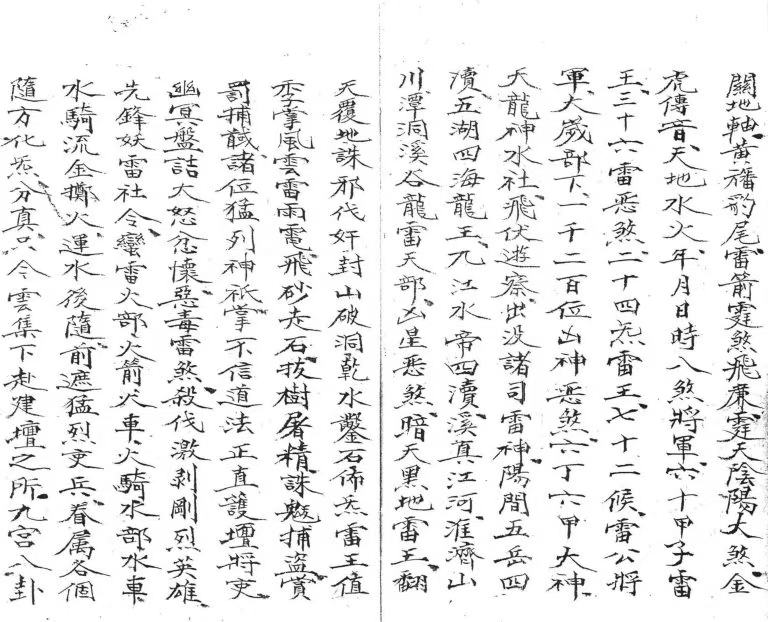 關地軸黃旛豹尾雷箭霆煞飛廉霆天陰陽大煞金
虎傳音天地水火年月日時八煞將軍六十甲子雷
王三十六雷惡煞二十四炁雷王七十二候雷公將
軍大歲部下一千二百位凶神惡煞六丁六甲大神
天龍神水社飛伏遊察出没諸司雷神陽間五岳四
瀆五湖四海龍王九江水帝四瀆溪真江河淮濟山
川潭洞溪谷龍雷天部凶星惡煞暗天黑地雷王翻
天覆地誅邪伐奸封山破洞乾水鑿石佈炁雷王值
季掌風雲雷雨電飛砂走石拔樹屠精誅魁捕盜賞
罰捕馘諸位猛列神祇掌不信道法正直護壇將吏
幽冥盤詰大怒忿懷惡毒雷煞殺伐激剥剛烈英雄
先鋒妖雷社令蠻雷火部火箭火車火騎水部水車
水騎流金擲火運水後隨前遮猛烈吏兵眷属各個
隨方化炁分真只令雲集下赴建壇之所九宮八卦